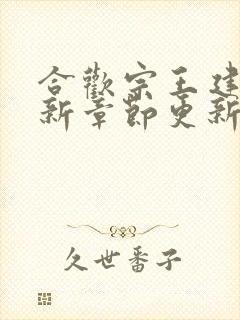 合歡宗王建
新章節更新
久世番子